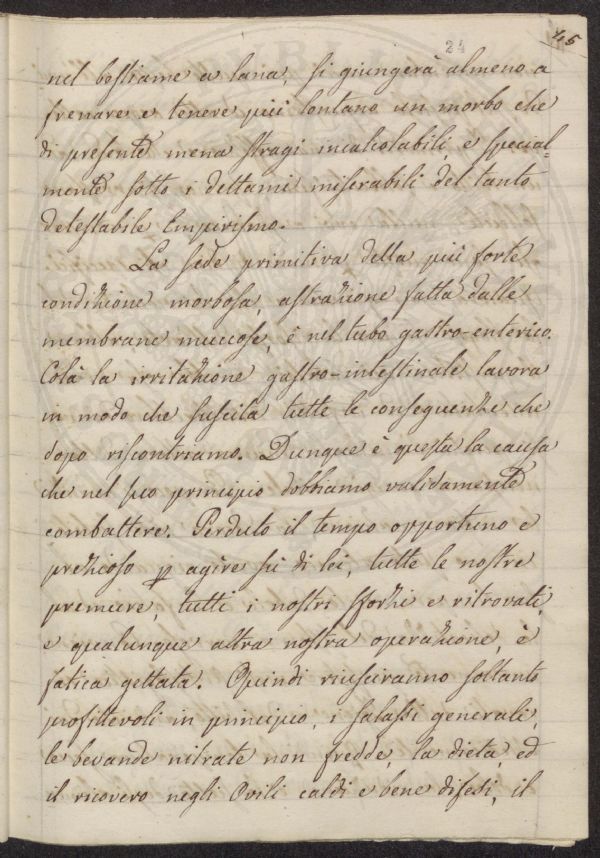 24
45
nel bestiame a lana, si giungerà almeno a
frenare e tenere più lontano un morbo che
di presente mena stragi incalcolabili, e special-
mente sotto i dettami miserabili del tanto
detestabile Empirismo.
La sede primitiva della più forte
condizione morbosa, astrazione fatta dalle
membrane muccose, è nel tubo gastro-enterico.
Colà la irritazione gastro-intestinale lavora
in modo che suscita tutte le conseguenze che
dopo riscontriamo. Dunque è questa la causa
che nel suo principio dobbiamo validamente
combattere. Perduto il tempo opportuno e
prezioso p agire su di lei, tutte le nostre
premure, tutti i nostri sforzi e ritrovati,
e qualunque altra nostra operazione, è
fatica gettata. Quindi riusciranno soltanto
profittevoli in principio, i salassi generali,
le bevande nitrate non fredde, la dieta, ed
il ricovero negli Ovili caldi e bene difesi, il